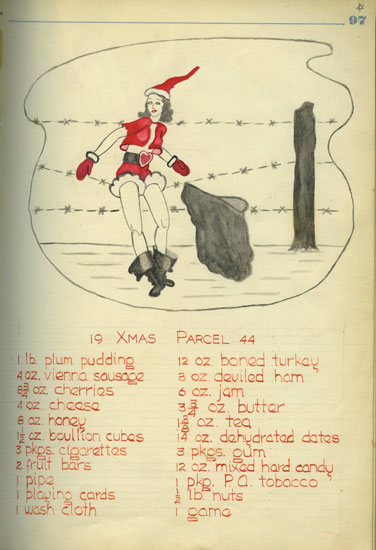 97
19 XMAS PARCEL 44
1 lb. plum pudding
4 oz. vienna sausage
8¾ oz. cherries
4 oz. cheese
8 oz. honey
1½ oz. boullion cubes
3 pkgs. cigarettes
2 fruit bars
1 pipe
1 playing cards
1 wash cloth
12 oz. boned turkey
3 oz. deviled ham
6 oz. jam
3¾ oz. butter
oz. tea
14 oz. dehydrated dates
3 pkgs. gum
12 oz. mixed hard candy
1 pkg. P.A. tobacco
½ lb. nuts
1 game